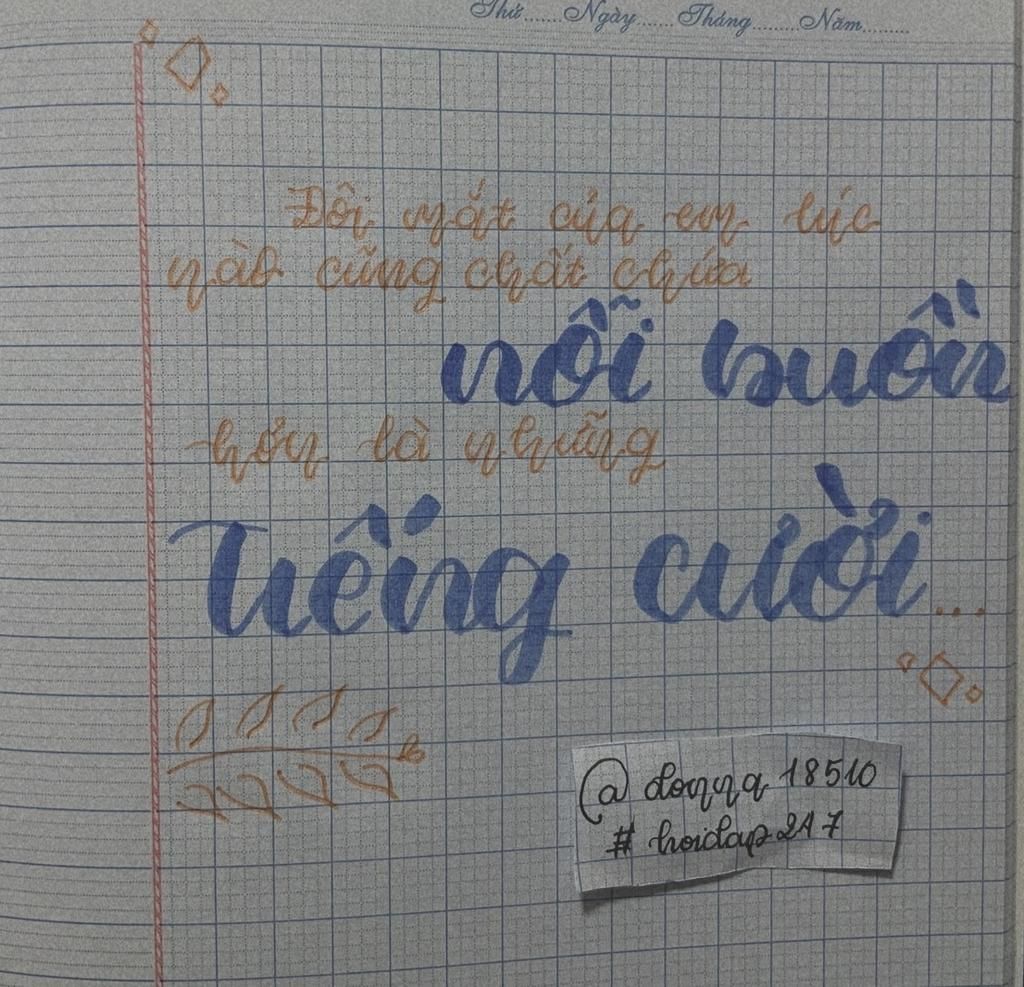 Thứ.......Ngày.......Tháng.........Năm.........
Đôi mắt của em lúc
nào cũng chất chứa
nỗi buồn
hơn là những
Tiếng cười...
@donna18510
# hoidap247